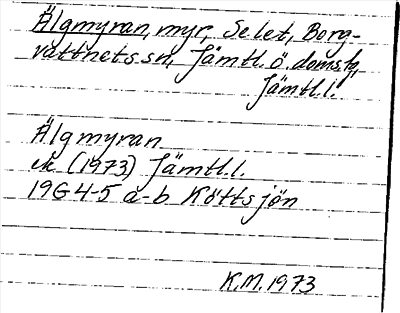 Älgmyran, myr, Selet, Borg-
vattnets sn, Jämtl. ö. doms.,
Jämtl.l.
Älgmyran
ek (1973) Jämtl.l.
19G 4-5 a-b Köttsjön
K.M. 1973